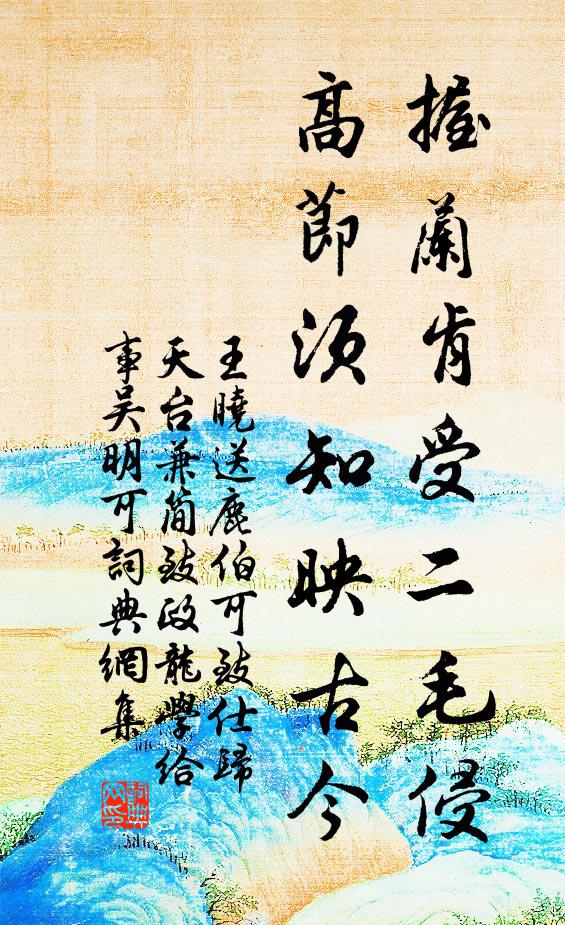 握蘭肯受二毛侵
高節須知映古今
王曉送鹿伯可致仕歸
天台兼簡致政龍學給
事吴明可詞典網集